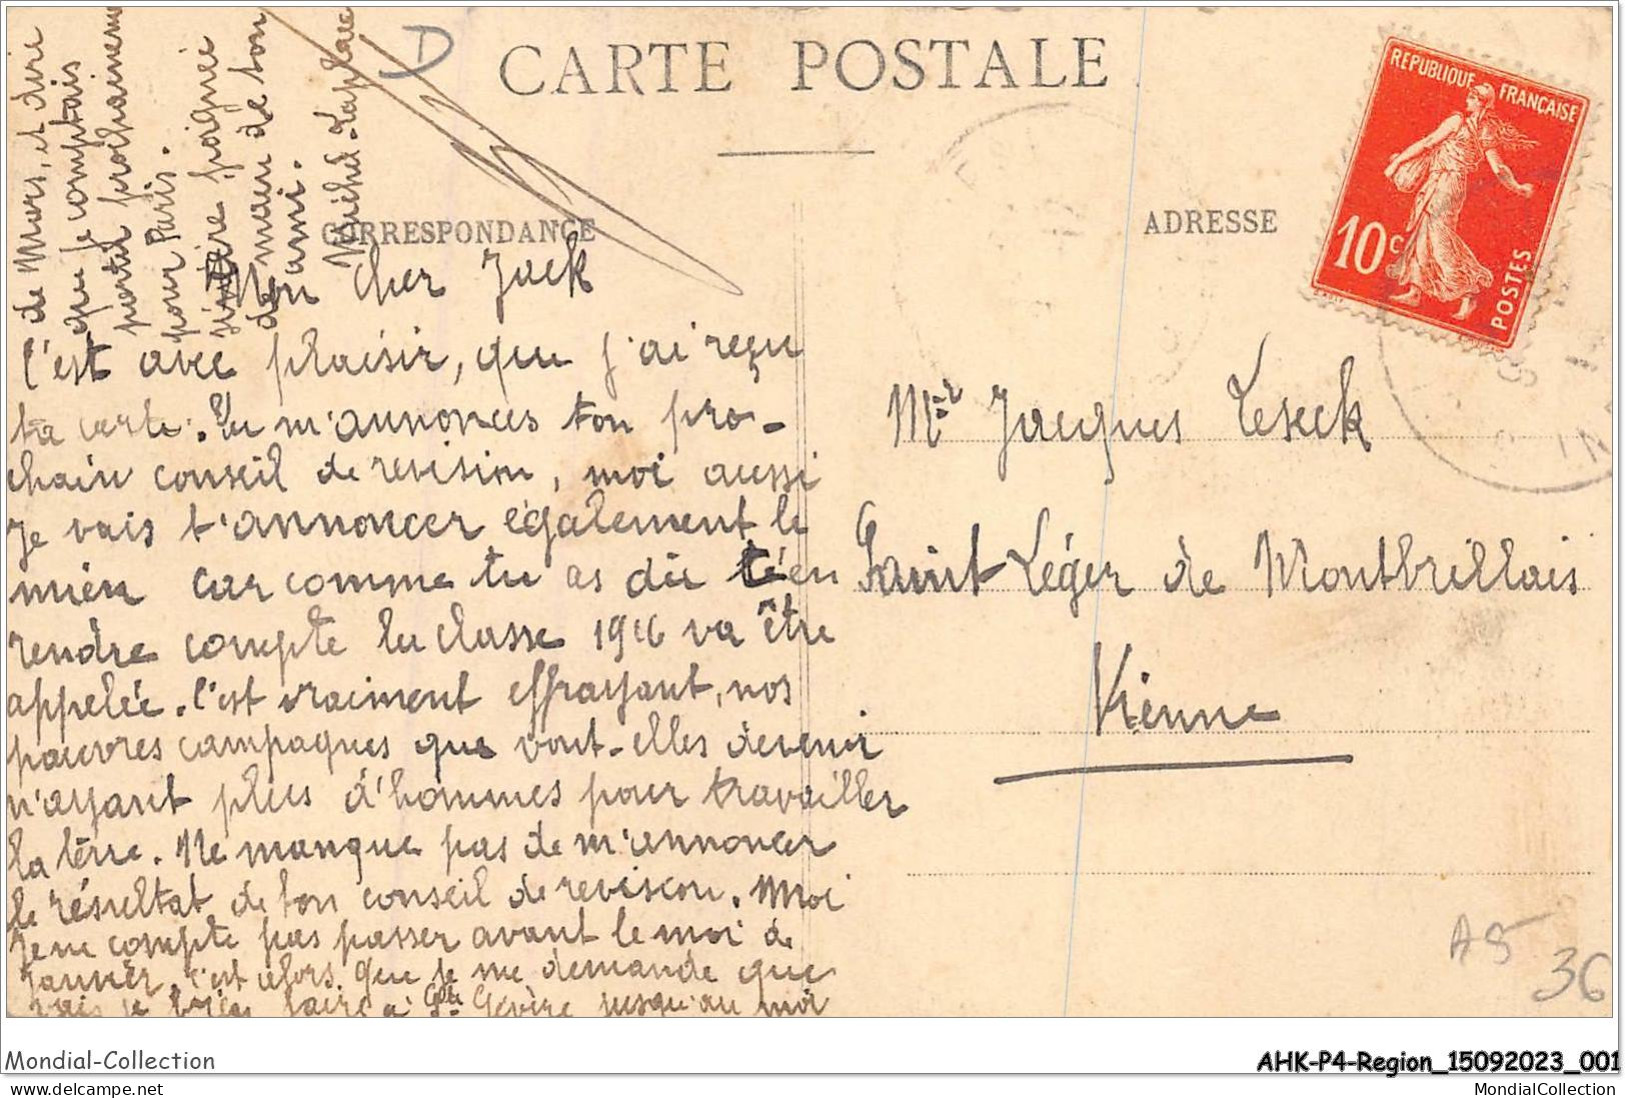 CARTE POSTALE
CORRESPONDANCE
ADRESSE
REPUBLIQUE FRANÇAISE
10c
POSTES
D
Mon cher Jack
C'est avec plaisir, que j'ai reçu
ta carte. Tu m'annonces ton pro-
chain conseil de revision, moi aussi
je vais t'annoncer également le
mien car comme tu as dû t'en
rendre compte la classe 1916 va être
appelée. C'est vraiment effrayant, nos
pauvres campagnes que vont-elles devenir
n'ayant plus d'hommes pour travailler
la terre. Ne manque pas de m'annoncer
le résultat de ton conseil de revision. Moi
je ne compte pas passer avant le moi de
Janvier, c'est alors que je me demande que
vais je faire à jusqu'au moi
de Mars, et dire
que je comptais
partir prochainement
pour Paris.
sincère poignée
de main de ton
ami.
Michel Laplace
Mr Jacques Leseck
Saint Léger de Montbrillais
Vienne
A5
36
Mondial-Collection
AHK-P4-Region_15092023_001
www.delcampe.net
MondialCollection